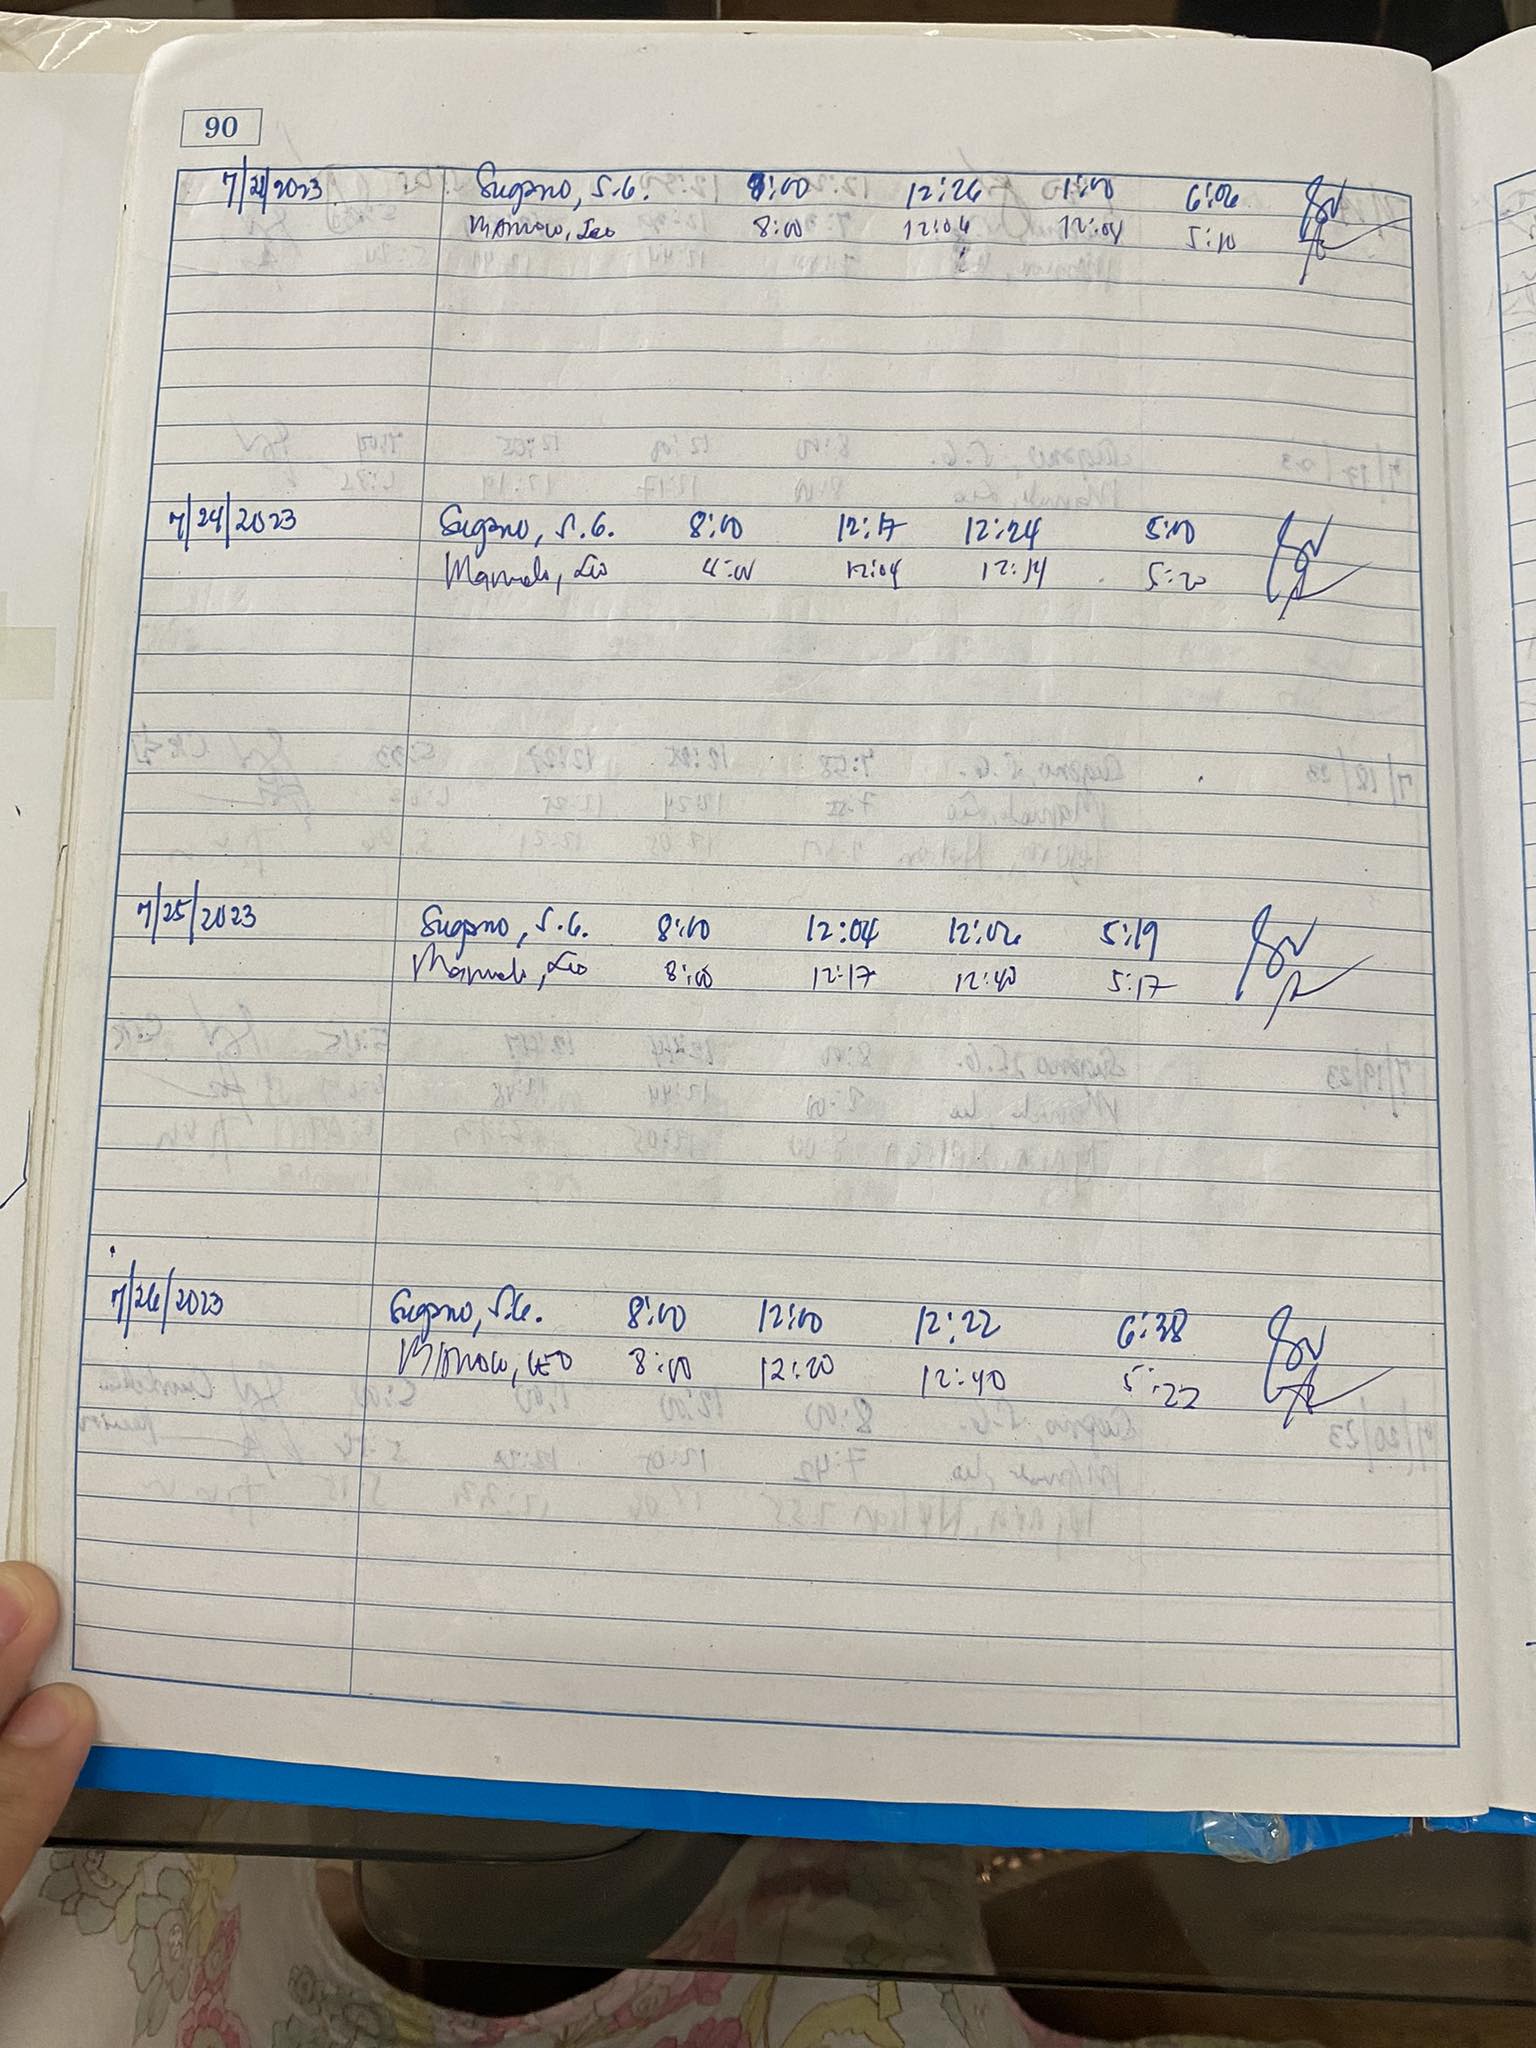 90
7/21/2023 Sugano, S.G. 8:00 12:26 1:00 6:06
Manolo, Leo 8:00 12:04 12:08 5:10
7/24/2023 Sugano, S.G. 8:00 12:17 12:24 5:00
Manolo, Leo 8:00 12:04 12:14 5:20
7/25/2023 Sugano, S.G. 8:00 12:04 12:06 5:19
Manolo, Leo 8:00 12:17 12:40 5:17
7/26/2023 Sugano, S.G. 8:00 12:00 12:22 6:38
Manolo, LEO 8:00 12:20 12:40 5:22